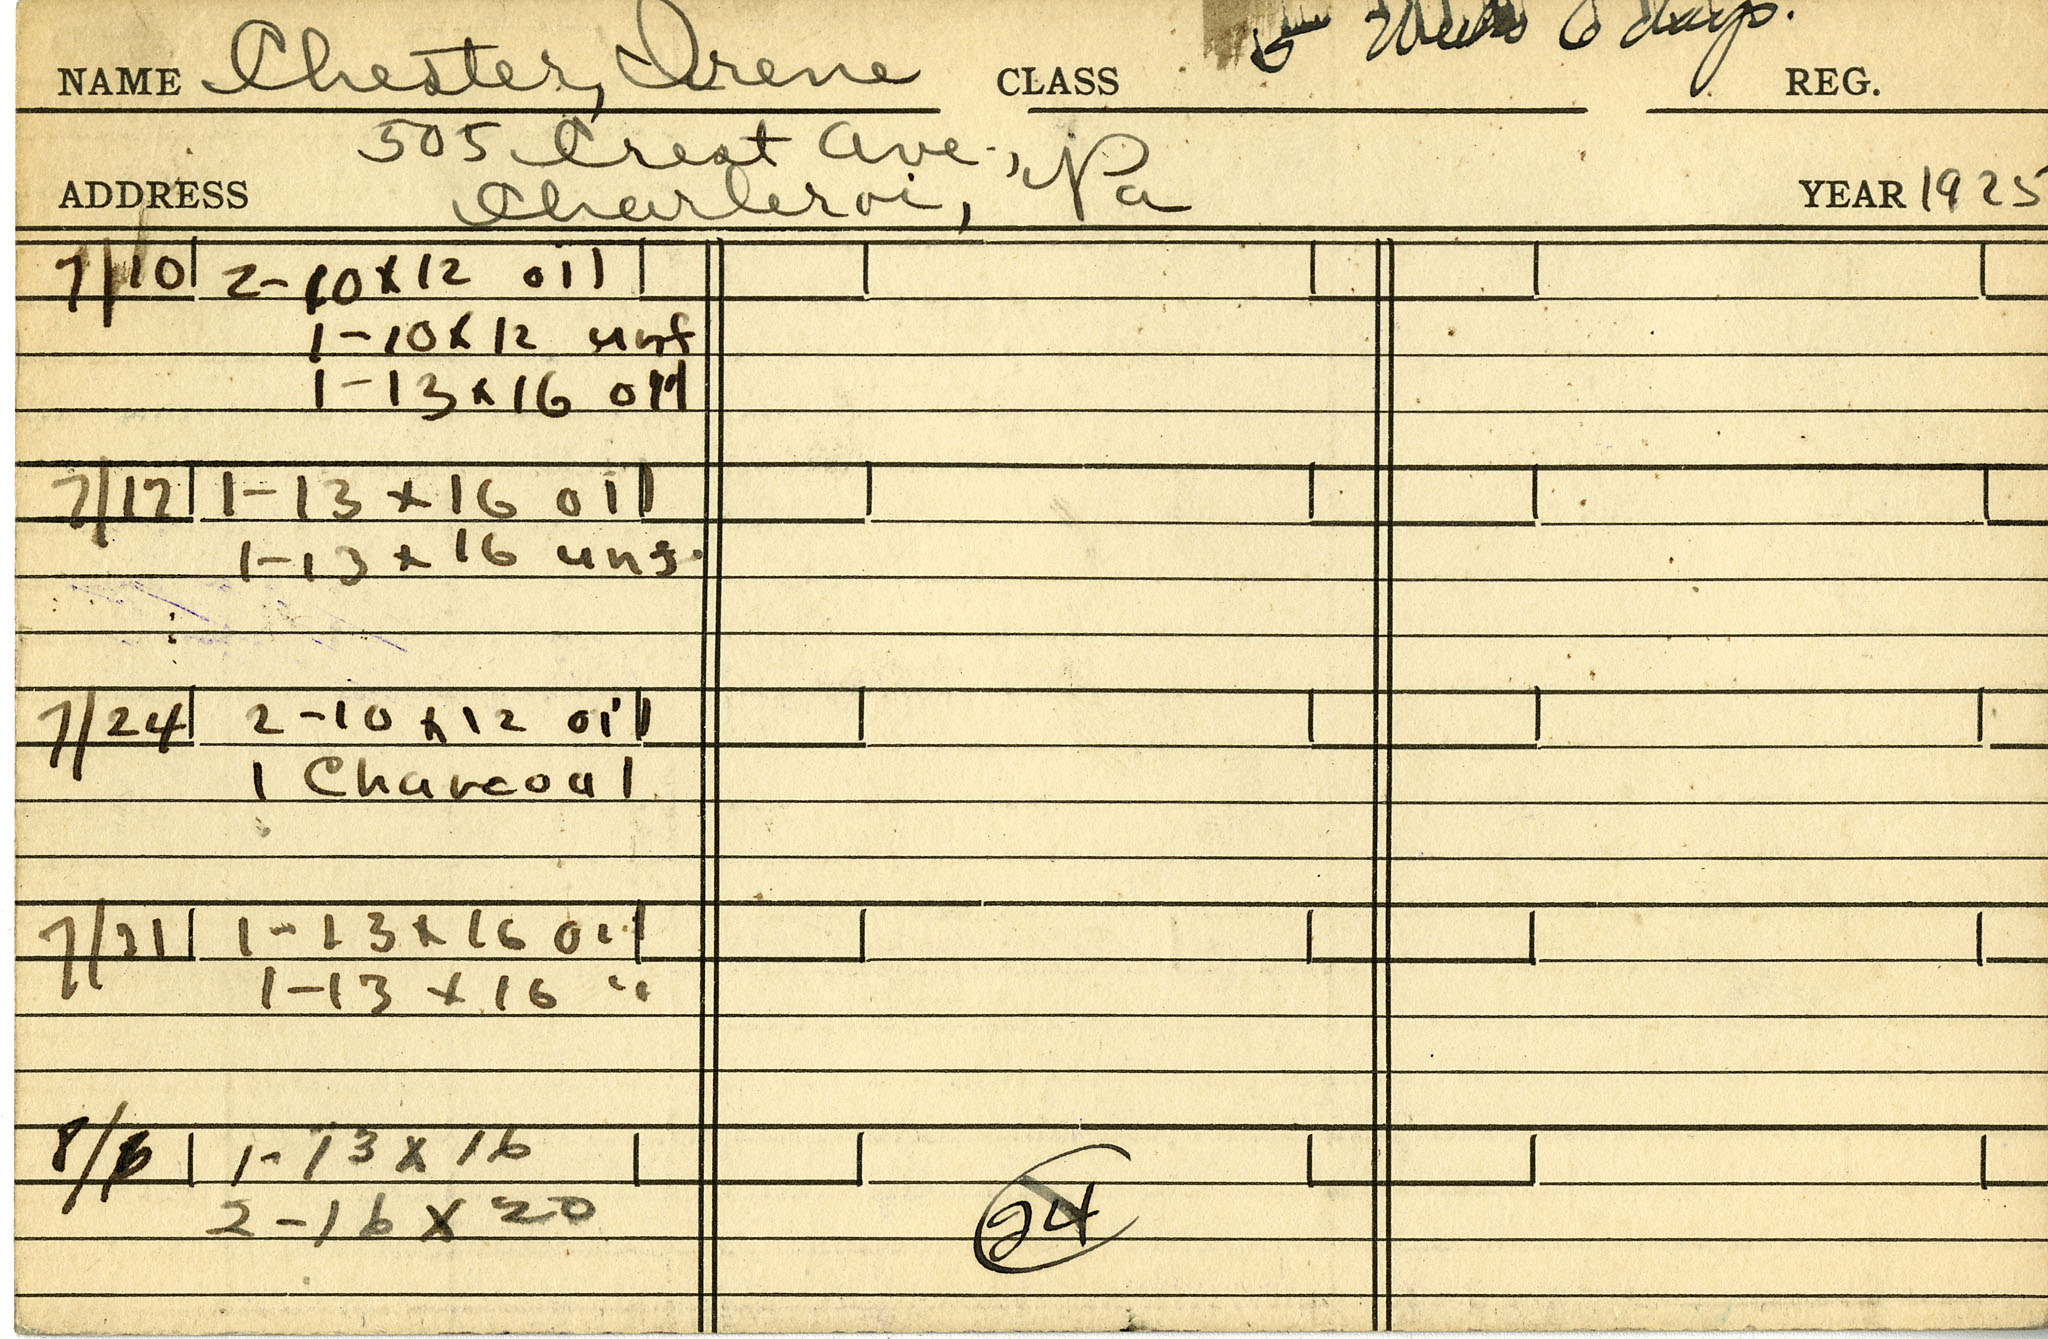 5 Weeks 6 days.
NAME Chester, Irene CLASS REG.
505 Crest Ave.,
ADDRESS Charleroi, Pa YEAR 1925
7/10 2-10x12 oil
1-10x12 unf
1-13x16 oil
7/17 1-13x16 oil
1-13x16 unf.
7/24 2-10x12 oil
1 Charcoal
7/31 1-13x16 oil
1-13x16 "
8/6 1-13x16
2-16x20
24